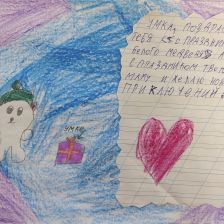 УМКА, ПОЗДРА
ТЕБЯ С ПРАЗДНИ
БЕЛОГО МЕДВЕДЯ
С ПРАЗДНИКОМ ТВО
МАМУ И ЖЕЛАЮ НО
ПРИКЛЮЧЕНИЙ
УМКЕ